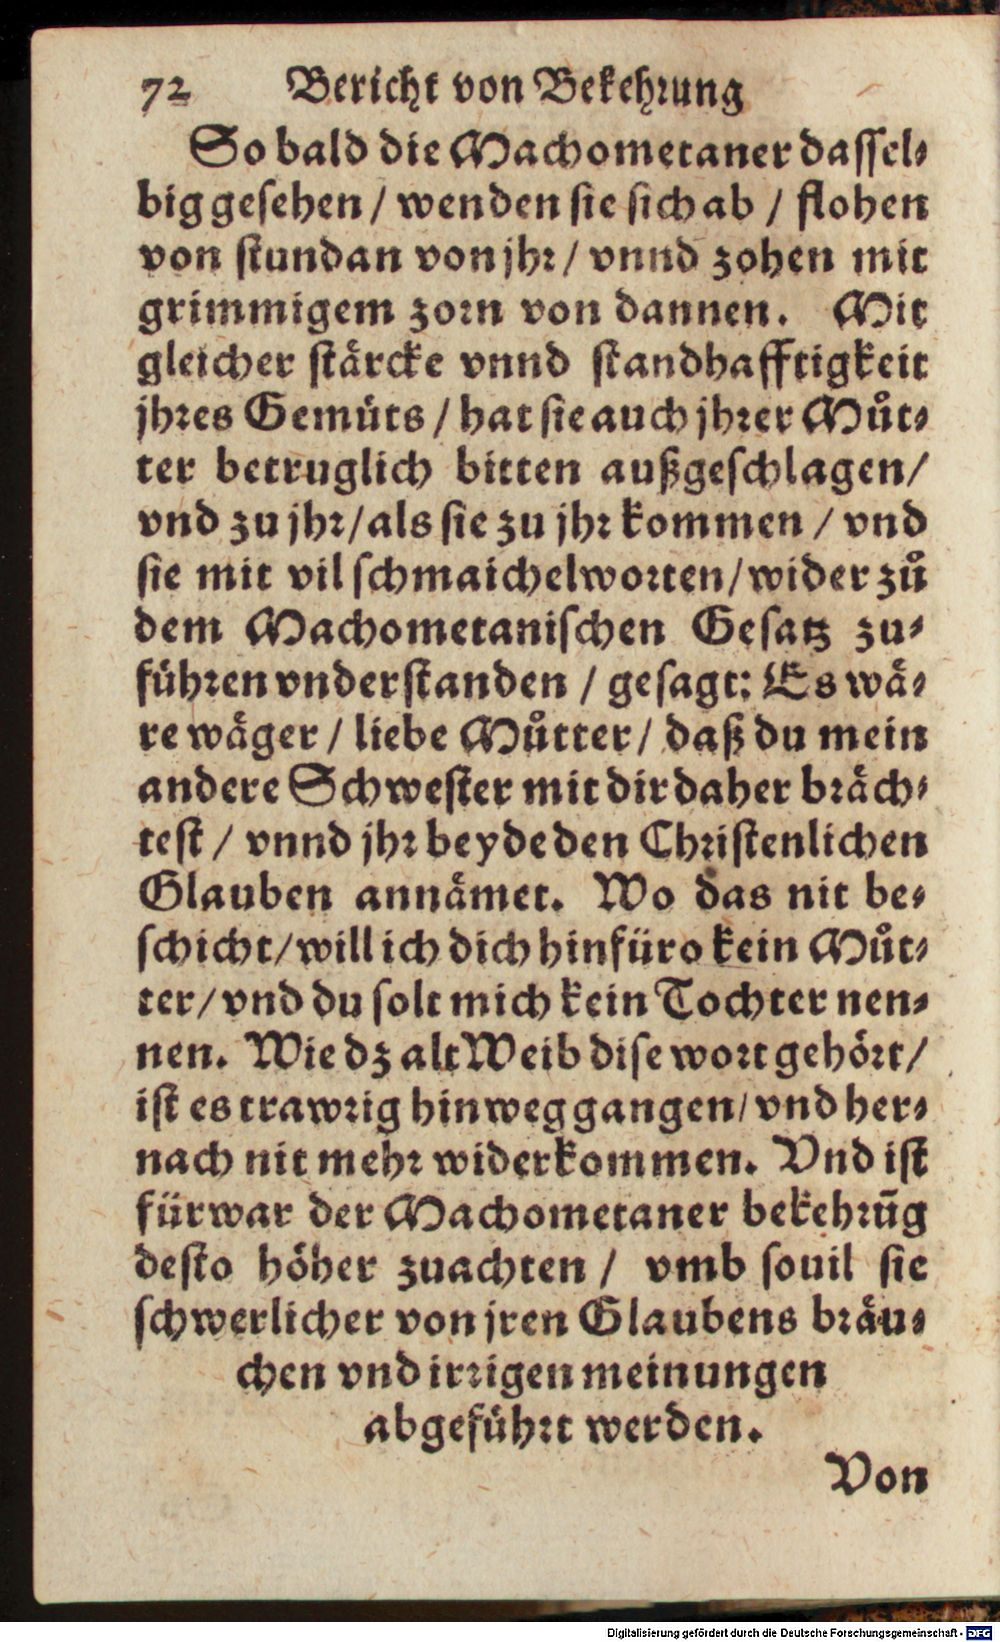 72 Bericht von Bekehrung
So bald die Machometaner dassel-
big gesehen / wenden sie sich ab / flohen
von stundan von jhr / vnnd zohen mit
grimmigem zorn von dannen. Mit
gleicher stärcke vnnd standhafftigkeit
jhres Gemüts / hat sie auch jhrer Můt-
ter betruglich bitten außgeschlagen /
vnd zu jhr / als sie zu jhr kommen / vnd
sie mit vil schmaichelworten / wider zů
dem Machometanischen Gesatz zu-
führen vnderstanden / gesagt: Es wä-
re wäger / liebe Můtter / daß du mein
andere Schwester mit dir daher bräch-
test / vnnd jhr beyde den Christenlichen
Glauben annämet. Wo das nit be-
schicht / will ich dich hinfüro kein Můt-
ter / vnd du solt mich kein Tochter nen-
nen. Wie dz alt Weib dise wort gehört /
ist es trawrig hinweg gangen / vnd her-
nach nit mehr widerkommen. Vnd ist
fürwar der Machometaner bekehrũg
desto höher zuachten / vmb souil sie
schwerlicher von jren Glaubens bräu-
chen vnd irrigen meinungen
abgeführt werden.
Von
Digitalisierung gefördert durch die Deutsche Forschungsgemeinschaft - DFG